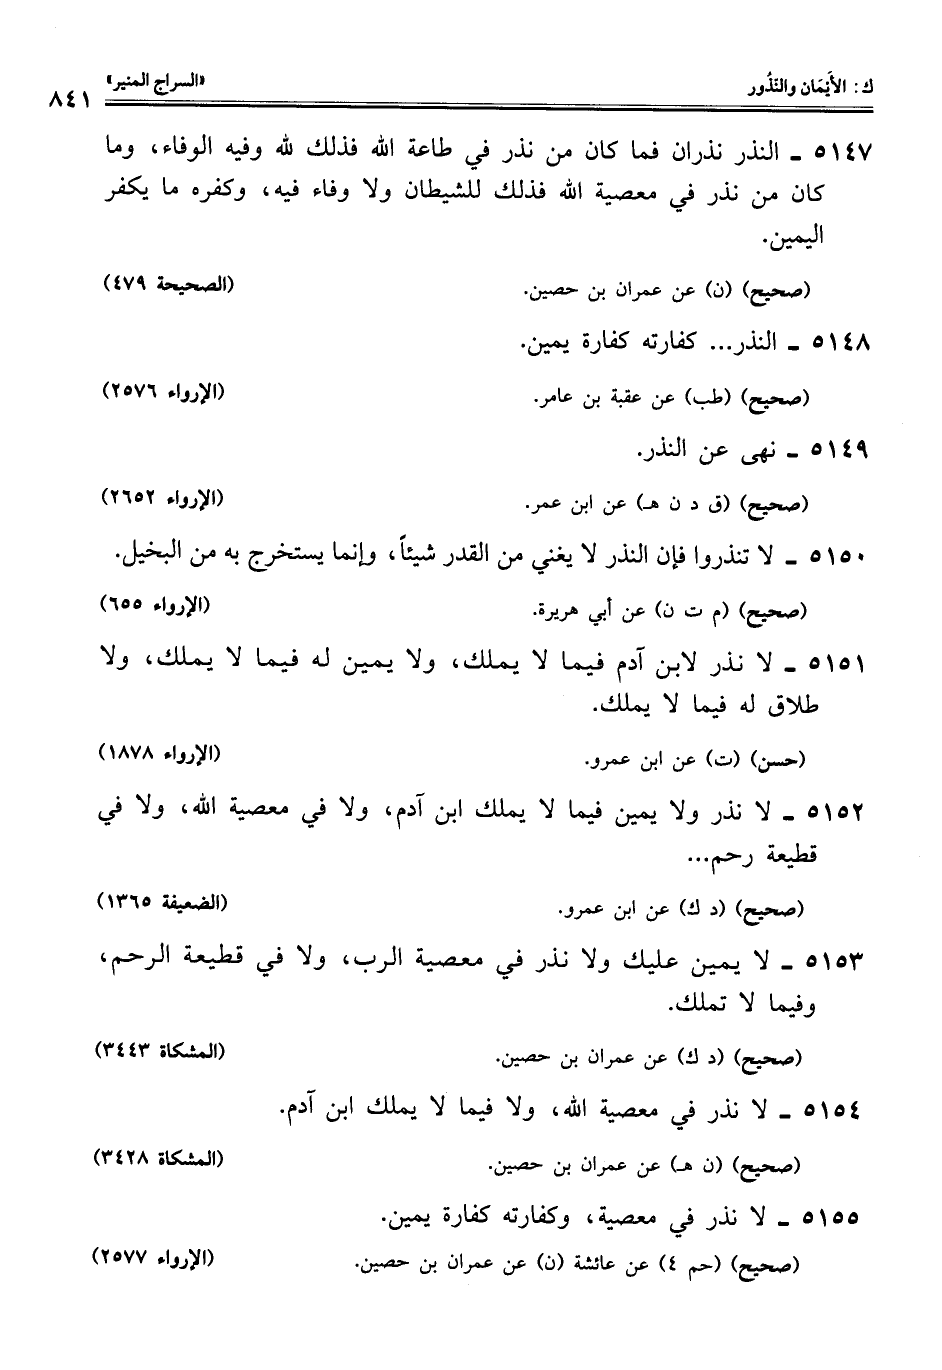 ك: الأَيْمَان والنّذُور
«السراج المنير»
٨٤١
٥١٤٧ ـ النذر نذران فما كان من نذر في طاعة الله فذلك لله وفيه الوفاء، وما
كان من نذر في معصية الله فذلك للشيطان ولا وفاء فيه، وكفره ما يكفر
اليمين.
(صحيح) (ن) عن عمران بن حصين. (الصحيحة ٤٧٩)
٥١٤٨ ـ النذر... كفارته كفارة يمين.
(صحيح) (طب) عن عقبة بن عامر. (الإرواء ٢٥٧٦)
٥١٤٩ ـ نهى عن النذر.
(صحيح) (ق د ن هـ) عن ابن عمر. (الإرواء ٢٦٥٢)
٥١٥٠ ـ لا تنذروا فإن النذر لا يغني من القدر شيئاً، وإنما يستخرج به من البخيل.
(صحيح) (م ت ن) عن أبي هريرة. (الإرواء ٦٥٥)
٥١٥١ ـ لا نذر لابن آدم فيما لا يملك، ولا يمين له فيما لا يملك، ولا
طلاق له فيما لا يملك.
(حسن) (ت) عن ابن عمرو. (الإرواء ١٨٧٨)
٥١٥٢ ـ لا نذر ولا يمين فيما لا يملك ابن آدم، ولا في معصية الله، ولا في
قطيعة رحم...
(صحيح) (د ك) عن ابن عمرو. (الضعيفة ١٣٦٥)
٥١٥٣ ـ لا يمين عليك ولا نذر في معصية الرب، ولا في قطيعة الرحم،
وفيما لا تملك.
(صحيح) (د ك) عن عمران بن حصين. (المشكاة ٣٤٤٣)
٥١٥٤ ـ لا نذر في معصية الله، ولا فيما لا يملك ابن آدم.
(صحيح) (ن هـ) عن عمران بن حصين. (المشكاة ٣٤٢٨)
٥١٥٥ ـ لا نذر في معصية، وكفارته كفارة يمين.
(صحيح) (حم ٤) عن عائشة (ن) عن عمران بن حصين. (الإرواء ٢٥٧٧)